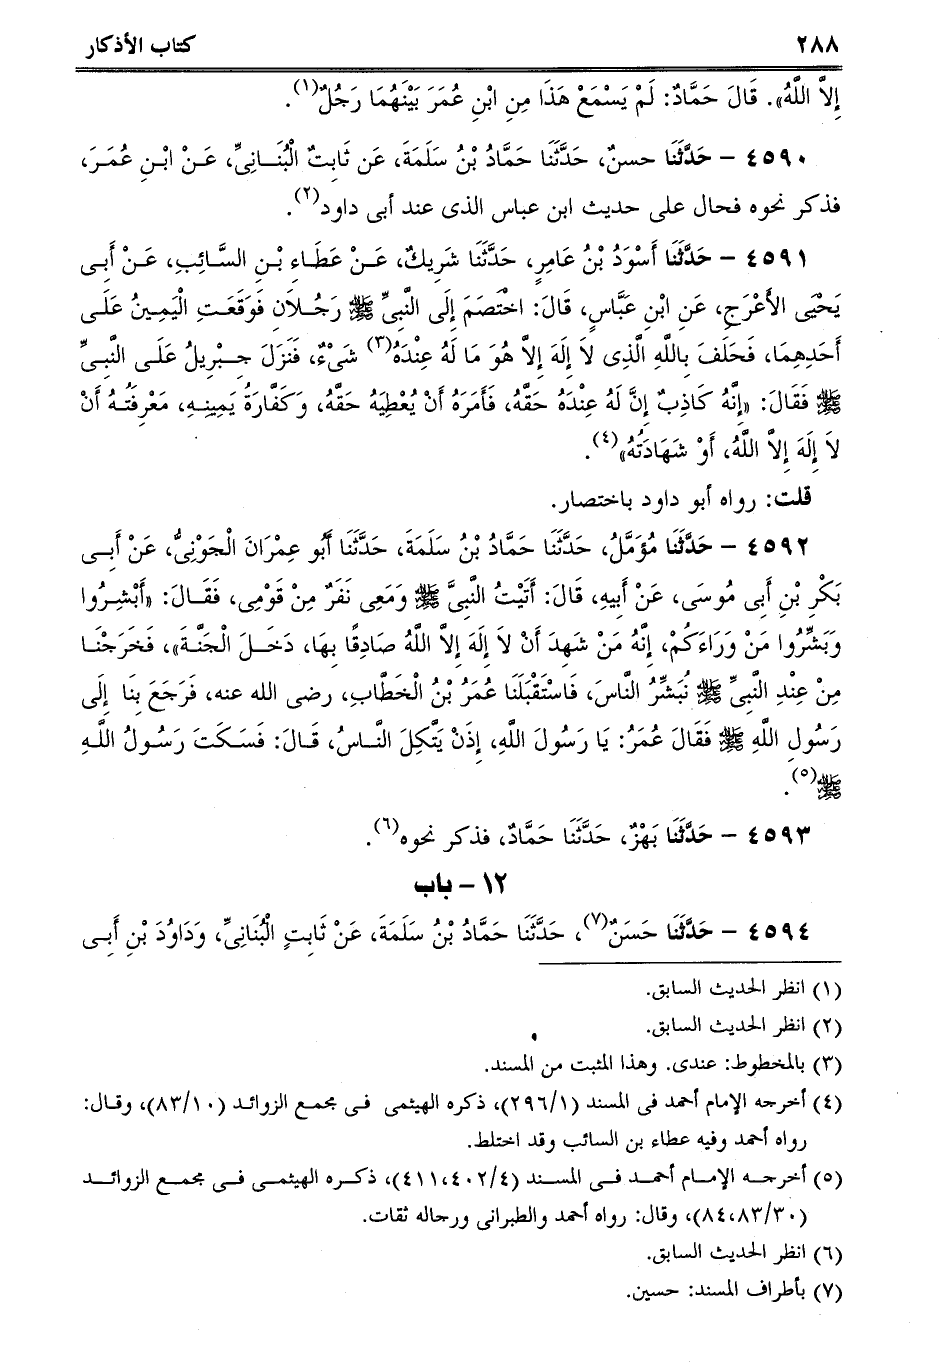 ٢٨٨ كتاب الأذكار
إِلاَّ اللَّهُ». قَالَ حَمَّادٌ: لَمْ يَسْمَعْ هَذَا مِنِ ابْنِ عُمَرَ بَيْنَهُمَا رَجُلٌ(١).
٤٥٩٠ – حَدَّثَنَا حسنٌ، حَدَّثَنَا حَمَّادُ بْنُ سَلَمَةَ، عَن ثَابِتٌ الْبُنَانِيِّ، عَنْ ابْنِ عُمَرَ،
فذكر نحوه فحال على حديث ابن عباس الذى عند أبى داود(٢).
٤٥٩١ – حَدَّثَنَا أَسْوَدُ بْنُ عَامِرٍ، حَدَّثَنَا شَرِيكٌ، عَنْ عَطَاءِ بْنِ السَّائِبِ، عَنْ أَبِى
يَحْيَى الأَعْرَجِ، عَنِ ابْنِ عَبَّاسٍ، قَالَ: اخْتَصَمَ إِلَى النَّبِىِّ ﷺ رَجُلاَنِ فَوَقَعَتِ الْيَمِينُ عَلَى
أَحَدِهِمَا، فَحَلَفَ بِاللَّهِ الَّذِى لاَ إِلَهَ إِلاَّ هُوَ مَا لَهُ عِنْدَهُ(٣) شَىْءٌ، فَنَزَلَ جِبْرِيلُ عَلَى النَّبِىِّ
ﷺ فَقَالَ: «إِنَّهُ كَاذِبٌ إِنَّ لَهُ عِنْدَهُ حَقَّهُ، فَأَمَرَهُ أَنْ يُعْطِيَهُ حَقَّهُ، وَكَفَّارَةُ يَمِينِهِ، مَعْرِفَتُهُ أَنْ
لاَ إِلَهَ إِلاَّ اللَّهُ، أَوْ شَهَادَتُهُ»(٤).
قلت: رواه أبو داود باختصار.
٤٥٩٢ – حَدَّثَنَا مُؤَمَّلٌ، حَدَّثَنَا حَمَّادُ بْنُ سَلَمَةَ، حَدَّثَنَا أَبُو عِمْرَانَ الْجَوْنِىُّ، عَنْ أَبِى
بَكْرِ بْنِ أَبِى مُوسَى، عَنْ أَبِيهِ، قَالَ: أَتَيْتُ النَّبِىَّ ﷺ وَمَعِى نَفَرٌ مِنْ قَوْمِى، فَقَالَ: «أَبْشِرُوا
وَبَشِّرُوا مَنْ وَرَاءَكُمْ، إِنَّهُ مَنْ شَهِدَ أَنْ لاَ إِلَهَ إِلاَّ اللَّهُ صَادِقًا بِهَا، دَخَلَ الْجَنَّةَ»، فَخَرَجْنَا
مِنْ عِنْدِ النَّبِىِّ ﷺ نُبَشِّرُ النَّاسَ، فَاسْتَقْبَلَنَا عُمَرُ بْنُ الْخَطَّابِ، رضى الله عنه، فَرَجَعَ بِنَا إِلَى
رَسُولِ اللَّهِ ﷺ فَقَالَ عُمَرُ: يَا رَسُولَ اللَّهِ، إِذَنْ يَتَّكِلَ النَّاسُ، قَالَ: فَسَكَتَ رَسُولُ اللَّهِ
ﷺ(٥).
٤٥٩٣ – حَدَّثَنَا بَهْزٌ، حَدَّثَنَا حَمَّادٌ، فذكر نحوه(٦).
١٢ – باب
٤٥٩٤ – حَدَّثَنَا حَسَنٌ(٧)، حَدَّثَنَا حَمَّادُ بْنُ سَلَمَةَ، عَنْ ثَابِتٍ الْبُنَانِىِّ، وَدَاوُدَ بْنِ أَبِى
(١) انظر الحديث السابق.
(٢) انظر الحديث السابق.
(٣) بالمخطوط: عندى. وهذا المثبت من المسند.
(٤) أخرجه الإمام أحمد فى المسند (٢٩٦/١)، ذكره الهيثمى فى مجمع الزوائد (٨٣/١٠)، وقال:
رواه أحمد وفيه عطاء بن السائب وقد اختلط.
(٥) أخرجه الإمام أحمد فى المسند (٤١١،٤٠٢/٤)، ذكره الهيثمى فى مجمع الزوائد
(٨٤،٨٣/٣٠)، وقال: رواه أحمد والطبرانى ورجاله ثقات.
(٦) انظر الحديث السابق.
(٧) بأطراف المسند: حسين.